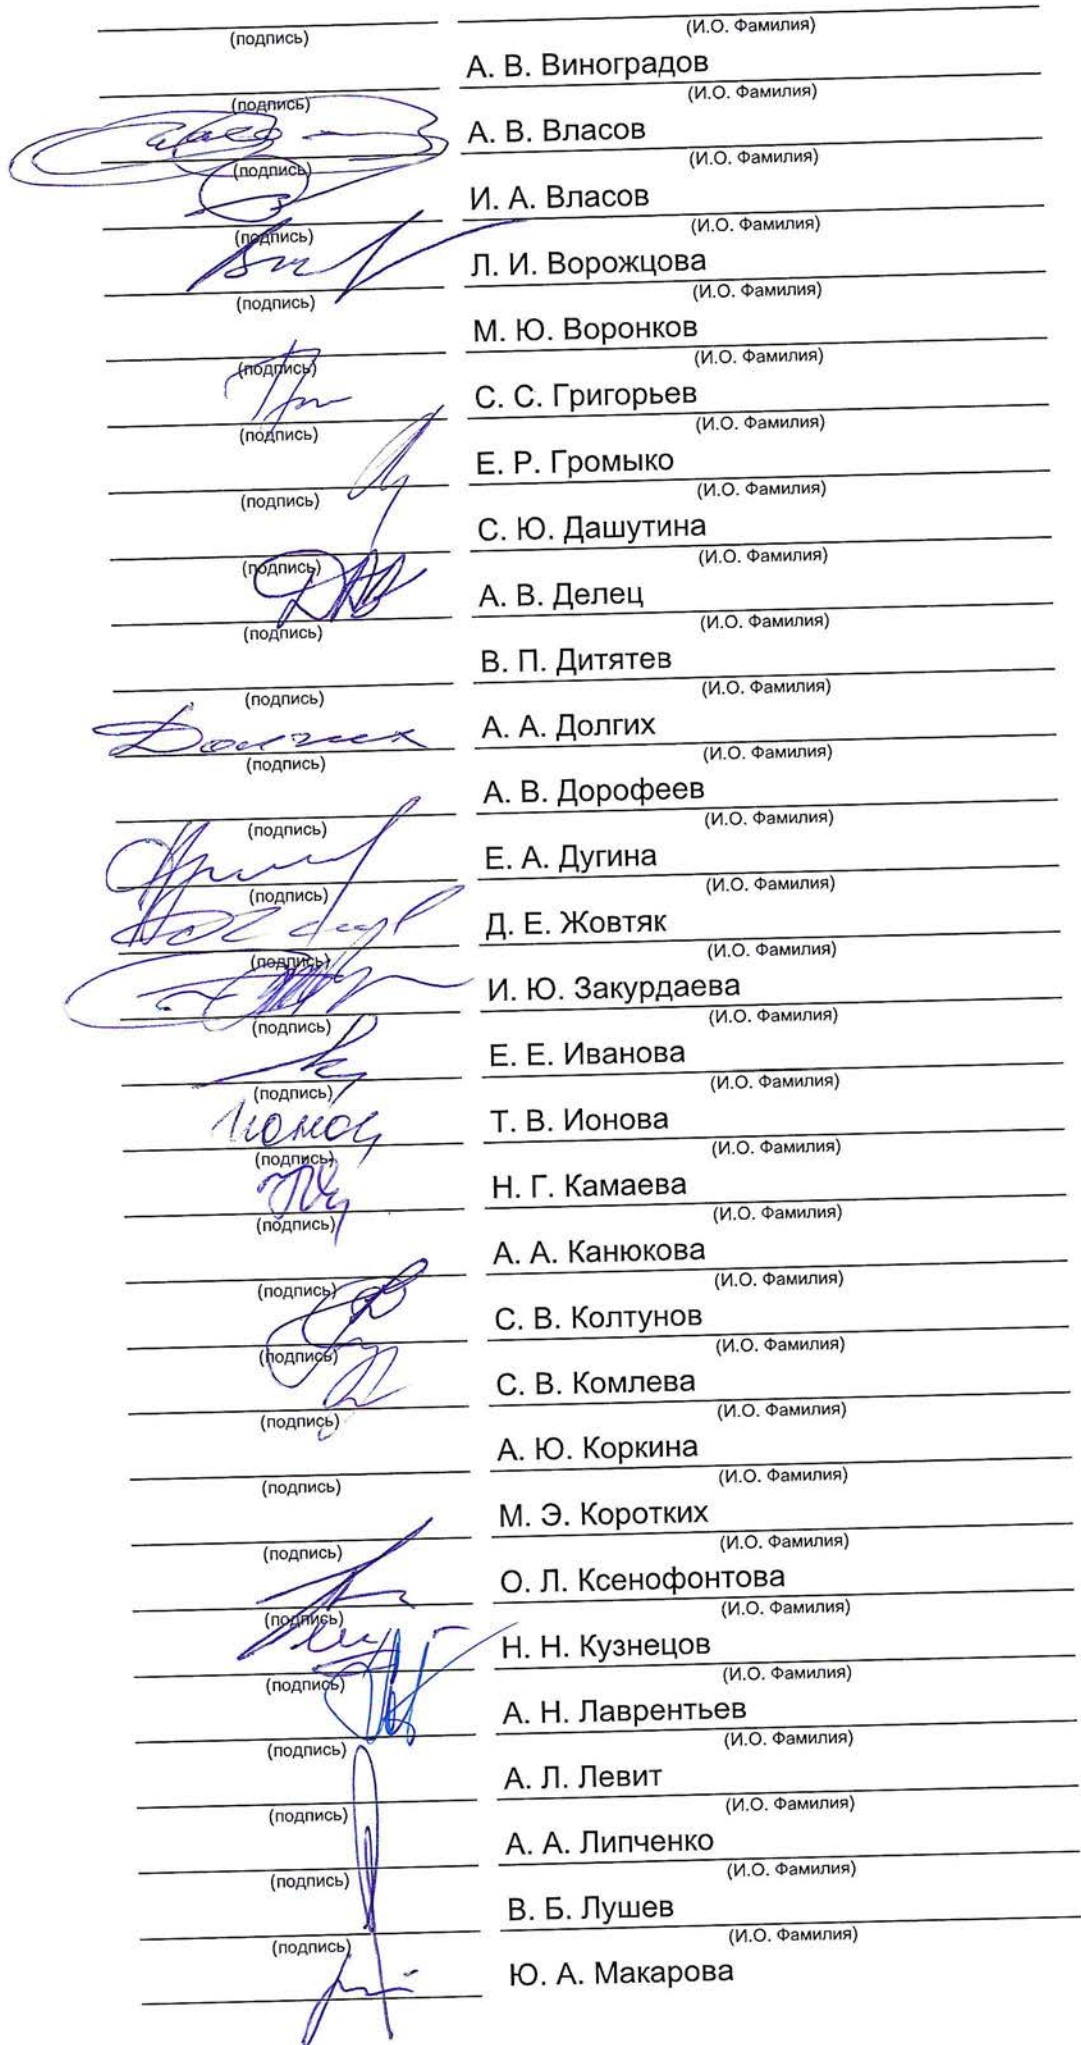 (подпись) (И.О. Фамилия)
А. В. Виноградов
(подпись) (И.О. Фамилия)
А. В. Власов
(подпись) (И.О. Фамилия)
И. А. Власов
(подпись) (И.О. Фамилия)
Л. И. Ворожцова
(подпись) (И.О. Фамилия)
М. Ю. Воронков
(подпись) (И.О. Фамилия)
С. С. Григорьев
(подпись) (И.О. Фамилия)
Е. Р. Громыко
(подпись) (И.О. Фамилия)
С. Ю. Дашутина
(подпись) (И.О. Фамилия)
А. В. Делец
(подпись) (И.О. Фамилия)
В. П. Дитятев
(подпись) (И.О. Фамилия)
Долгих А. А. Долгих
(подпись) (И.О. Фамилия)
А. В. Дорофеев
(подпись) (И.О. Фамилия)
Е. А. Дугина
(подпись) (И.О. Фамилия)
Д. Е. Жовтяк
(подпись) (И.О. Фамилия)
И. Ю. Закурдаева
(подпись) (И.О. Фамилия)
Е. Е. Иванова
(подпись) (И.О. Фамилия)
Т. В. Ионова
(подпись) (И.О. Фамилия)
Н. Г. Камаева
(подпись) (И.О. Фамилия)
А. А. Канюкова
(подпись) (И.О. Фамилия)
С. В. Колтунов
(подпись) (И.О. Фамилия)
С. В. Комлева
(подпись) (И.О. Фамилия)
А. Ю. Коркина
(подпись) (И.О. Фамилия)
М. Э. Коротких
(подпись) (И.О. Фамилия)
О. Л. Ксенофонтова
(подпись) (И.О. Фамилия)
Н. Н. Кузнецов
(подпись) (И.О. Фамилия)
А. Н. Лаврентьев
(подпись) (И.О. Фамилия)
А. Л. Левит
(подпись) (И.О. Фамилия)
А. А. Липченко
(подпись) (И.О. Фамилия)
В. Б. Лушев
(подпись) (И.О. Фамилия)
Ю. А. Макарова